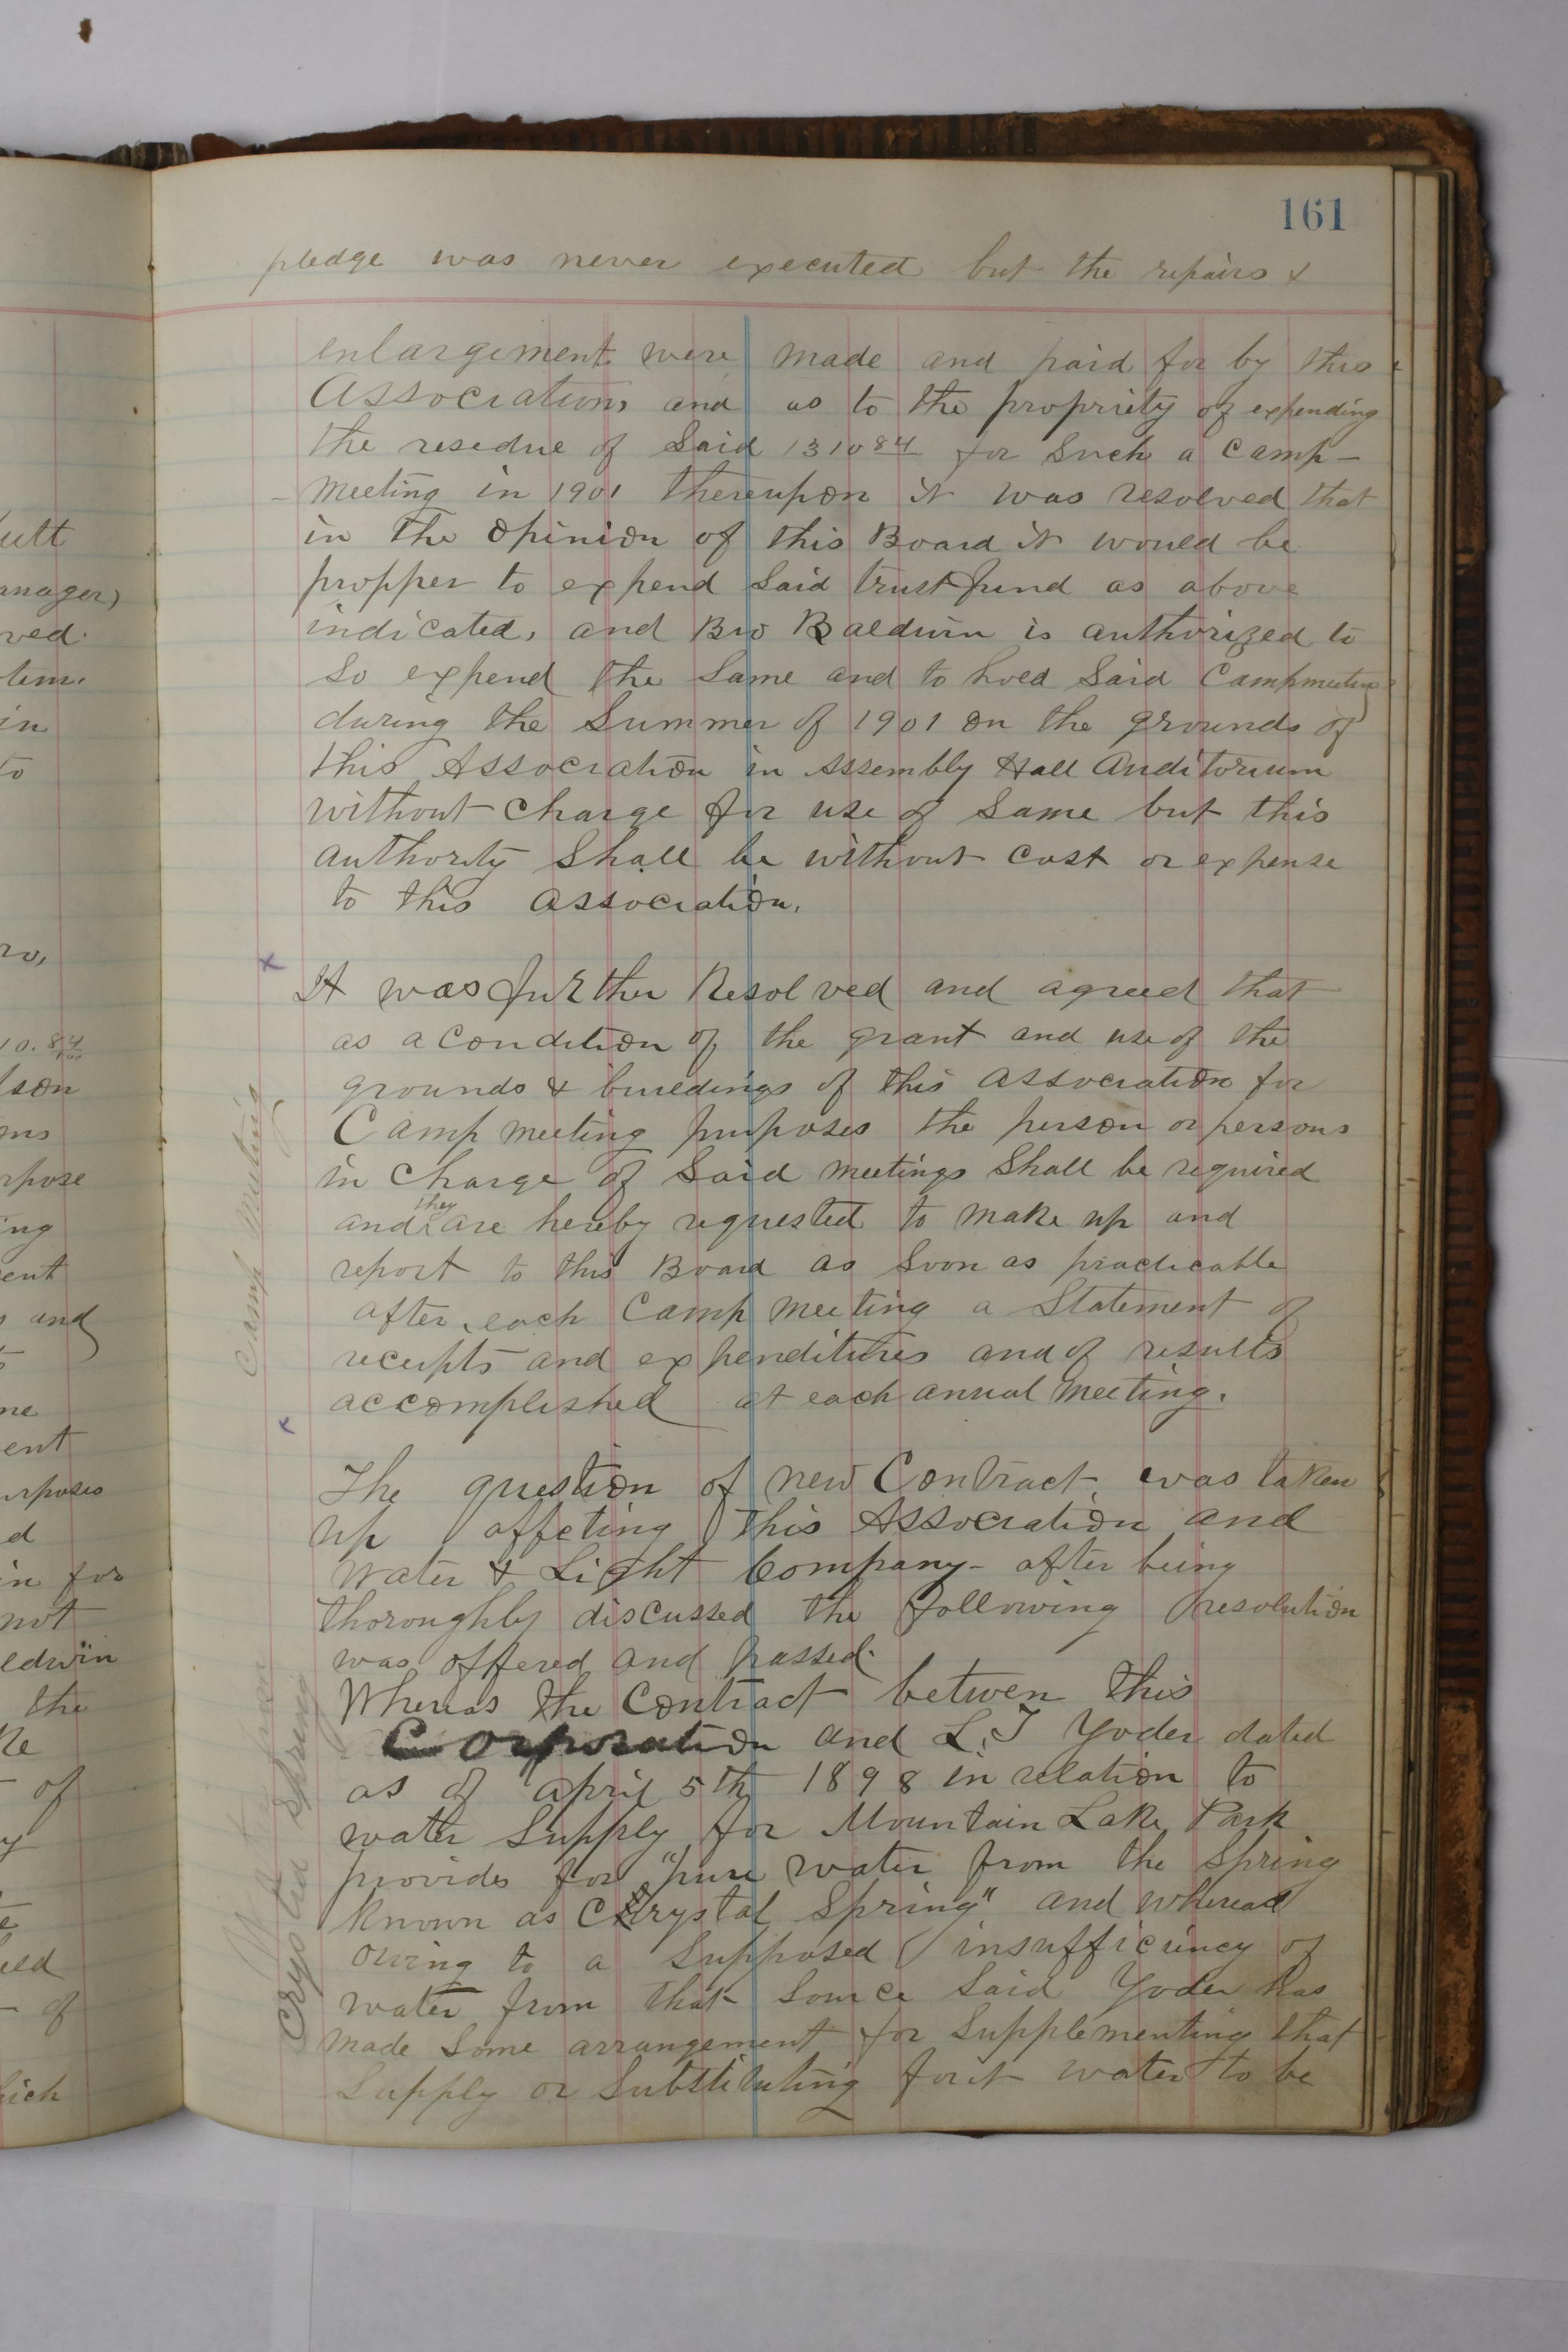 161
pledge was never executed but the repairs &
enlargement were made and paid for by this
Association, and as to the propriety of expending
the resedue of Said 1310 84 for Such a Camp-
-meeting in 1901 thereupon it was resolved that
in the opinion of this Board it would be
propper to expend Said trust fund as above
indicated, and Bro Baldwin is authorized to
So expend the Same and to hold Said Campmeeting
during the Summer of 1901 on the grounds of
this Association in Assembly Hall Auditorium
without Charge for use of Same but this
authority Shall be without cost or expense
to this association.
x
It was further Resolved and agreed that
as a condition of the grant and use of the
grounds & buildings of this association for
Camp meeting purposes the person or persons
in Charge of Said meetings Shall be required
and they are hereby requested to make up and
report to this Board as Soon as practicable
after each Camp meeting a Statement of
receipts and expenditures and of results
accomplished at each annual meeting.
x
Camp Meeting
The question of new Contract was taken
up affeting this Association and
Water & Light Company- after being
thoroughly discussed the following resolution
was offered and passed.
Whereas the Contract betwen this
Corporation and L.T Yoder dated
as of april 5th 1898 in relation to
water Supply for Mountain Lake Park
provides for "pure water from the Spring
known as Crystal Spring" and whereas
owing to a Supposed insufficiency of
water from that Source Said Yoder has
made Some arrangement for Supplementing that
Supply or Substituting for it water to be
Crystal Spring
utt
anager)
ved.
tem.
in
to
ro,
10.84
son
ms
rpose
ing
ent
s and
ne
ent
urposes
d
in for
not
aldwin
the
ke
of
y
eld
of
hich